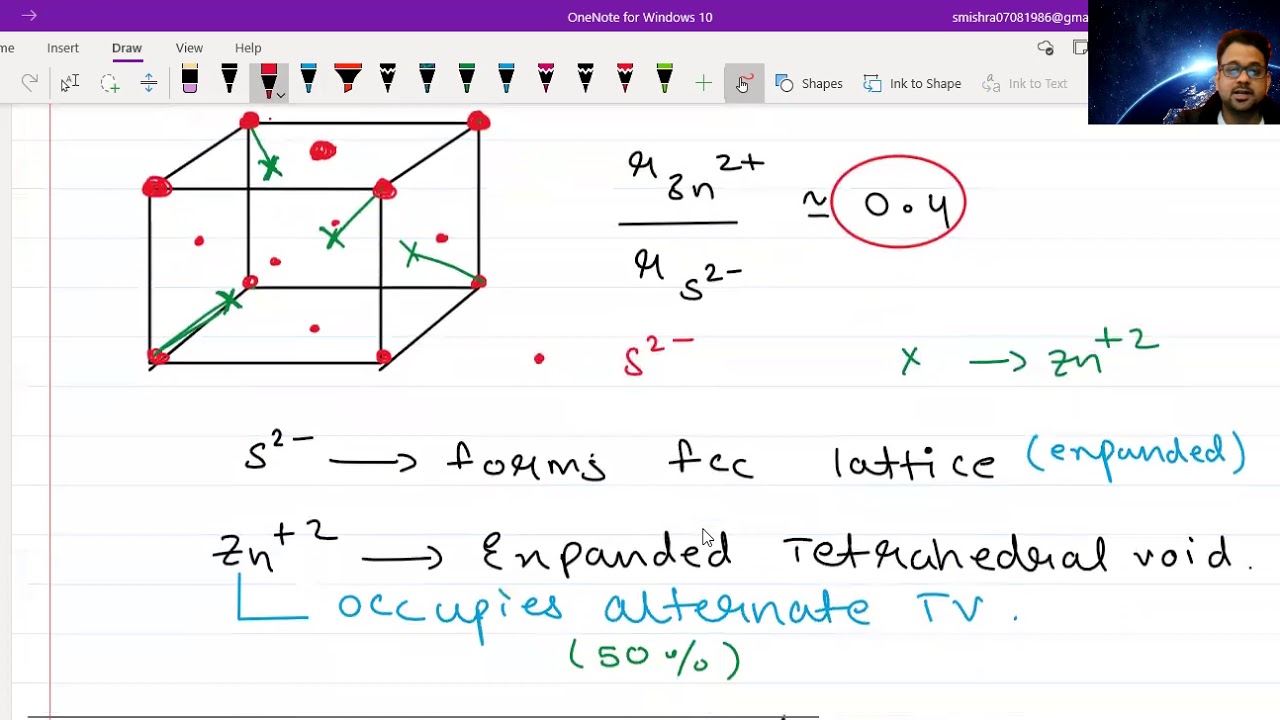 OneNote for Windows 10
smishra07081986@gma
me Insert Draw View Help
Shapes Ink to Shape Ink to Text
r Zn2+
≃ 0.4
r S2-
S2- x → Zn+2
S2- → forms fcc lattice (expanded)
Zn+2 → Expanded Tetrahedral void.
occupies alternate TV.
(50%)